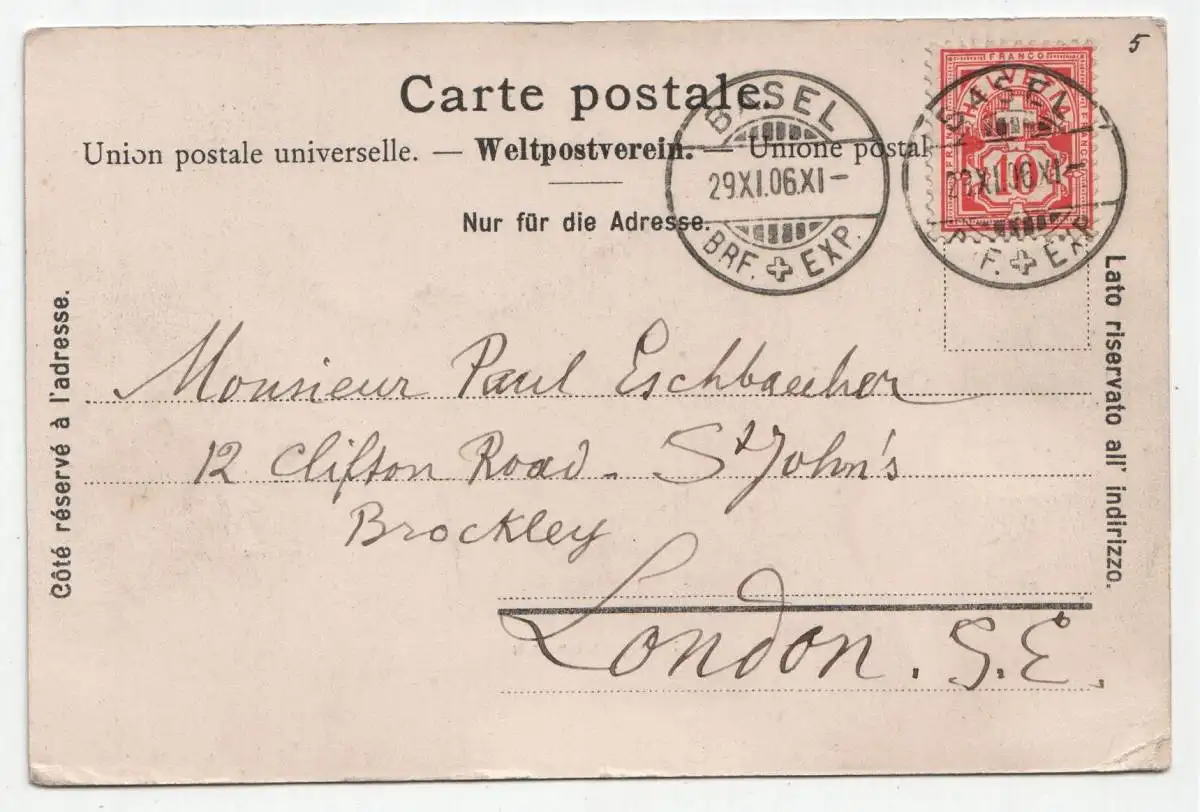 5
Carte postale.
Union postale universelle. — Weltpostverein. — Unione postal
Nur für die Adresse.
BASEL
29.XI.06.XI–
BRF. EXP.
FRANCO
HELVETIA
10
BASEL
29.XI.06.XI–
BRF. EXP.
Côté réservé à l'adresse.
Lato riservato all' indirizzo.
Monsieur Paul Eschbaecher
12 Clifton Road - St John's
Brockley
London. S.E.